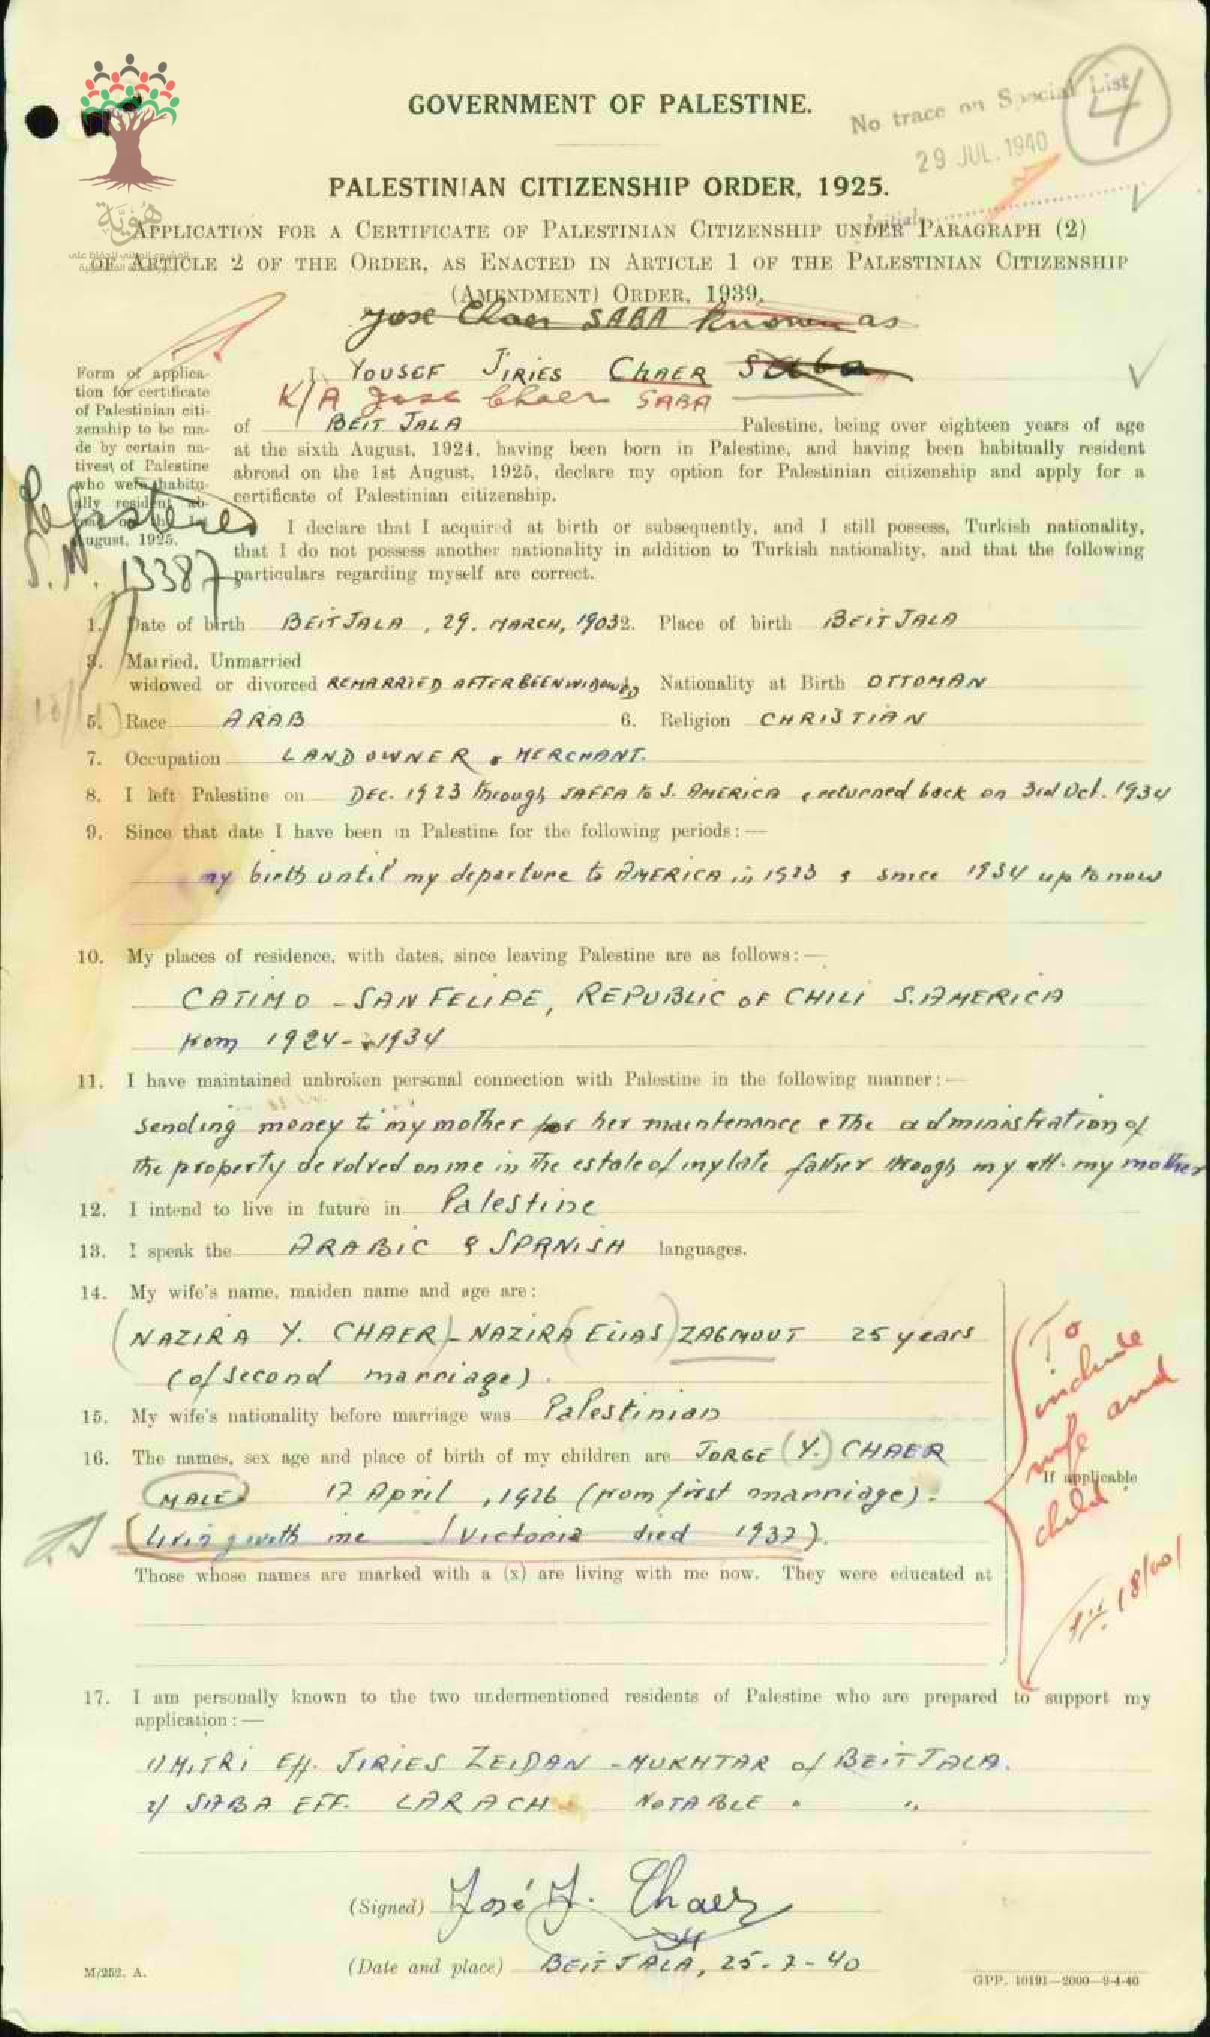 GOVERNMENT OF PALESTINE.
No trace on Special List
4
29 JUL. 1940
PALESTINIAN CITIZENSHIP ORDER, 1925.
Initials
هوية
APPLICATION FOR A CERTIFICATE OF PALESTINIAN CITIZENSHIP UNDER PARAGRAPH (2)
OF ARTICLE 2 OF THE ORDER, AS ENACTED IN ARTICLE 1 OF THE PALESTINIAN CITIZENSHIP
(AMENDMENT) ORDER, 1939.
Jose Chaer SABA known as
I, YOUSEF JIRIES CHAER Saba
K/A Jose Chaer SABA
Form of applica-
tion for certificate
of Palestinian citi-
zenship to be ma-
de by certain na-
tives of Palestine
who were habitu-
ally resident ab-
August, 1925.
Registered
S.N. 13387
of BEIT JALA Palestine, being over eighteen years of age
at the sixth August, 1924, having been born in Palestine, and having been habitually resident
abroad on the 1st August, 1925, declare my option for Palestinian citizenship and apply for a
certificate of Palestinian citizenship.
I declare that I acquired at birth or subsequently, and I still possess, Turkish nationality,
that I do not possess another nationality in addition to Turkish nationality, and that the following
particulars regarding myself are correct.
1. Date of birth BEIT JALA, 29. MARCH, 1903 2. Place of birth BEIT JALA
3. Married, Unmarried
widowed or divorced REMARRIED AFTER BEEN WIDOWED Nationality at Birth OTTOMAN
5. Race ARAB 6. Religion CHRISTIAN
7. Occupation LAND OWNER & MERCHANT.
8. I left Palestine on DEC. 1923 through JAFFA to S. AMERICA & returned back on 3rd Oct. 1934
9. Since that date I have been in Palestine for the following periods:—
my birth until my departure to AMERICA in 1923 & since 1934 up to now
10. My places of residence, with dates, since leaving Palestine are as follows:—
CATIMO - SAN FELIPE, REPUBLIC OF CHILI S. AMERICA
from 1924 - 1934
11. I have maintained unbroken personal connection with Palestine in the following manner:—
Sending money to my mother for her maintenance & the administration of
the property devolved on me in the estate of my late father through my att. my mother
12. I intend to live in future in Palestine
13. I speak the ARABIC & SPANISH languages.
14. My wife's name, maiden name and age are:
(NAZIRA Y. CHAER) - NAZIRA (ELIAS) ZAGMOUT 25 years
(of second marriage).
15. My wife's nationality before marriage was Palestinian
16. The names, sex age and place of birth of my children are JORGE (Y.) CHAER
MALE 17 April, 1926 (from first marriage).
(living with me / Victoria died 1932).
To include wife and child
If applicable
18/10/
Those whose names are marked with a (x) are living with me now. They were educated at
17. I am personally known to the two undermentioned residents of Palestine who are prepared to support my
application:—
1) MITRI Eff. JIRIES ZEIDAN - MUKHTAR of BEIT JALA.
2/ SABA EFF. LARACH NOTABLE " "
(Signed) José J. Chaer
(Date and place) BEIT JALA, 25-7-40
M/252. A.
GPP. 10191—2000—9-4-40